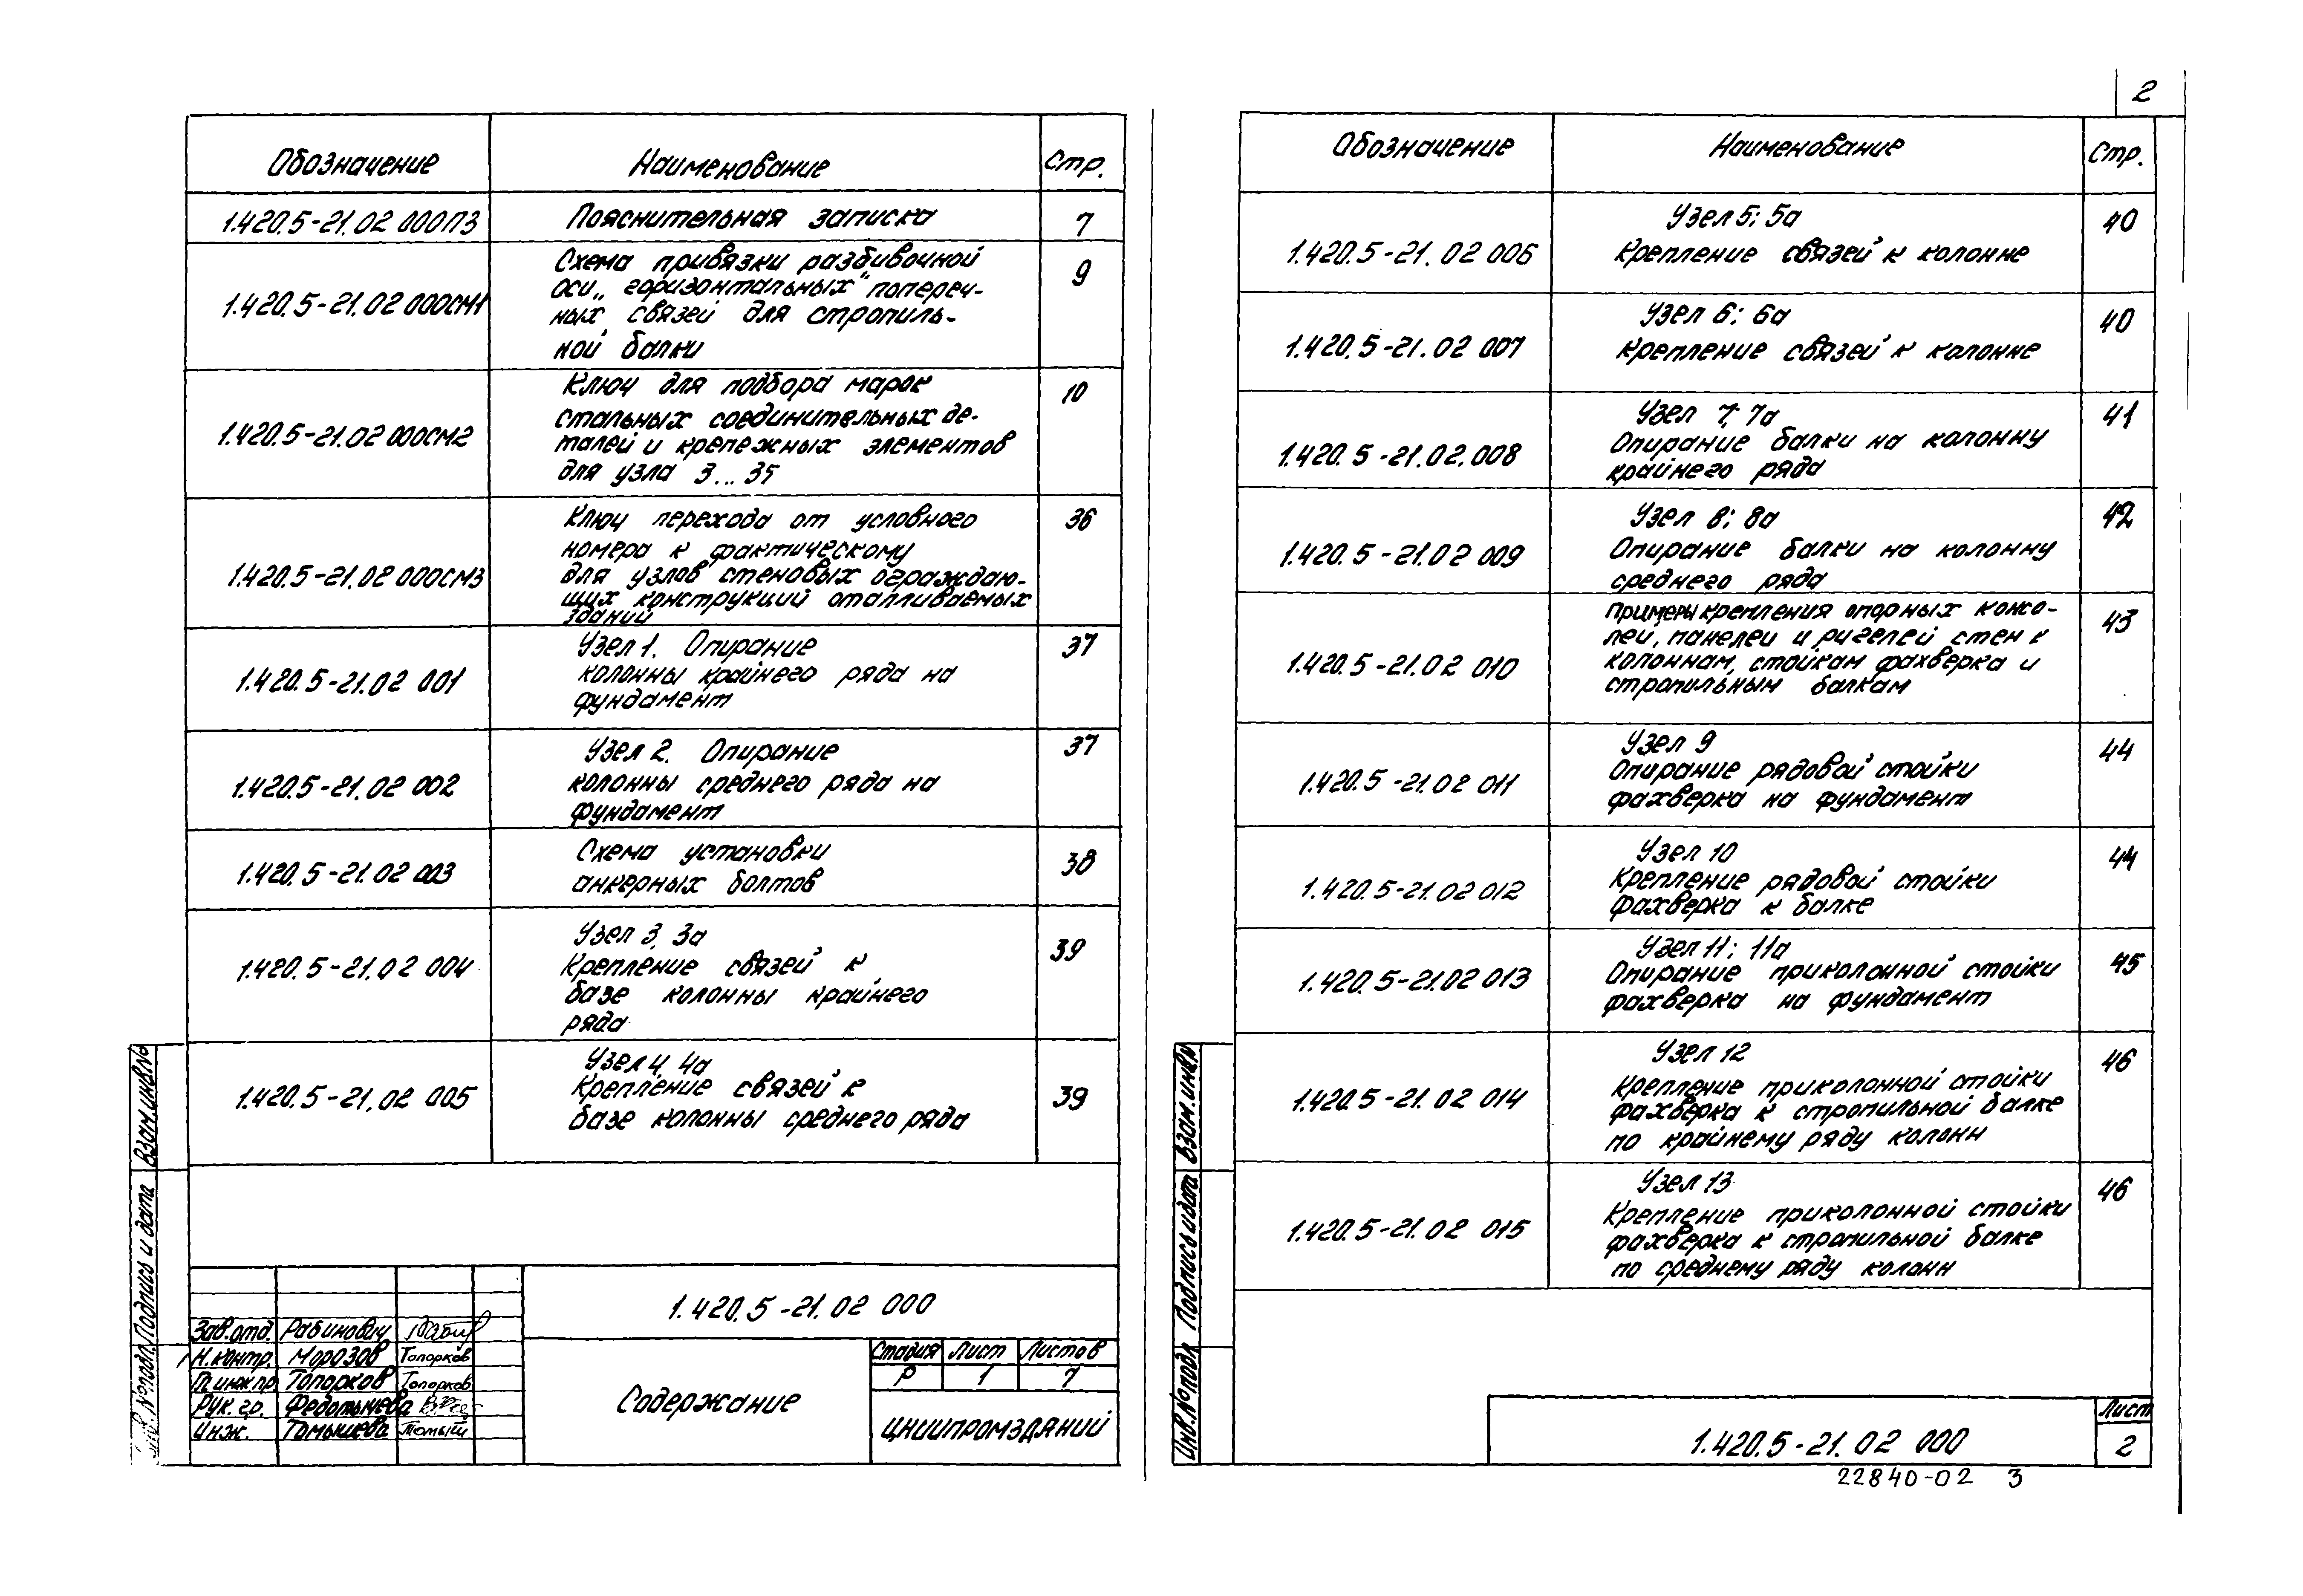 2
Обозначение Наименование Стр.
1.420.5-21.02 000ПЗ Пояснительная записка 7
1.420.5-21.02 000СМ1 Схема привязки разбивочной 9
оси „горизонтальных" попереч-
ных связей для стропиль-
ной балки
1.420.5-21.02 000СМ2 Ключ для подбора марок 10
стальных соединительных де-
талей и крепежных элементов
для узла 3...35
1.420.5-21.02 000СМ3 Ключ перехода от условного 36
номера к фактическому
для узлов стеновых ограждаю-
щих конструкций отапливаемых
зданий
1.420.5-21.02 001 Узел 1. Опирание 37
колонны крайнего ряда на
фундамент
1.420.5-21.02 002 Узел 2. Опирание 37
колонны среднего ряда на
фундамент
1.420.5-21.02 003 Схема установки 38
анкерных болтов
1.420.5-21.02 004 Узел 3, 3а 39
Крепление связей к
базе колонны крайнего
ряда
1.420.5-21.02 005 Узел 4, 4а 39
Крепление связей к
базе колонны среднего ряда
1.420.5-21.02 000
Зав.отд. Рабинович
Н.контр. Морозов Топорков
Гл.инж.пр. Топорков Топорков
Рук. гр.
Инж.
Содержание
Стадия Лист Листов
Р 1 7
ЦНИИПРОМЗДАНИЙ
Взам.инв.№
Подпись и дата
Инв.№подл.
Обозначение Наименование Стр.
1.420.5-21.02 006 Узел 5; 5а 40
Крепление связей к колонне
1.420.5-21.02 007 Узел 6; 6а 40
Крепление связей к колонне
1.420.5-21.02.008 Узел 7; 7а 41
Опирание балки на колонну
крайнего ряда
1.420.5-21.02 009 Узел 8; 8а 42
Опирание балки на колонну
среднего ряда
1.420.5-21.02 010 Примеры крепления опорных консо- 43
лей, панелей и ригелей стен к
колоннам, стойкам фахверка и
стропильным балкам
1.420.5-21.02 011 Узел 9 44
Опирание рядовой стойки
фахверка на фундамент
1.420.5-21.02 012 Узел 10 44
Крепление рядовой стойки
фахверка к балке
1.420.5-21.02 013 Узел 11; 11а 45
Опирание приколонной стойки
фахверка на фундамент
1.420.5-21.02 014 Узел 12 46
Крепление приколонной стойки
фахверка к стропильной балке
по крайнему ряду колонн
1.420.5-21.02 015 Узел 13 46
Крепление приколонной стойки
фахверка к стропильной балке
по среднему ряду колонн
Взам.инв.№
Подпись и дата
Инв.№подл
1.420.5-21.02 000
Лист
2
22840-02 3